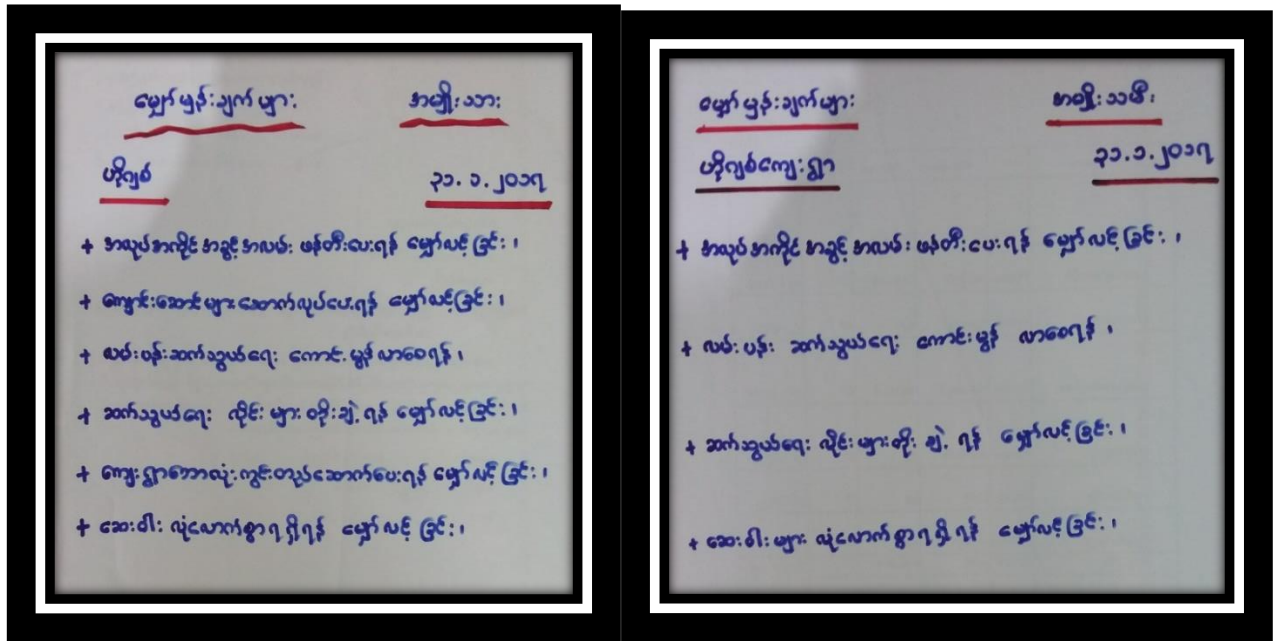 မျှော်မှန်းချက်များ အမျိုးသား
ဟိုဂျစ် ၃၁.၁.၂၀၁၇
+ အလုပ်အကိုင်အခွင့်အလမ်း ဖန်တီးပေးရန် မျှော်လင့်ခြင်း၊
+ ကျောင်းဆောင်များဆောက်လုပ်ပေးရန် မျှော်လင့်ခြင်း၊
+ လမ်းပန်းဆက်သွယ်ရေး ကောင်းမွန်လာစေရန်၊
+ ဆက်သွယ်ရေး လိုင်းများ တိုးချဲ့ရန် မျှော်လင့်ခြင်း၊
+ ကျေးရွာဘောလုံးကွင်းတည်ဆောက်ပေးရန် မျှော်လင့်ခြင်း၊
+ ဆေးဝါး လုံလောက်စွာရရှိရန် မျှော်လင့်ခြင်း၊
မျှော်မှန်းချက်များ အမျိုးသမီး
ဟိုဂျစ်ကျေးရွာ ၃၁.၁.၂၀၁၇
+ အလုပ်အကိုင်အခွင့်အလမ်း ဖန်တီးပေးရန် မျှော်လင့်ခြင်း၊
+ လမ်းပန်း ဆက်သွယ်ရေး ကောင်းမွန် လာစေရန်၊
+ ဆက်သွယ်ရေး လိုင်းများတိုးချဲ့ရန် မျှော်လင့်ခြင်း၊
+ ဆေးဝါးများ လုံလောက်စွာရရှိရန် မျှော်လင့်ခြင်း၊